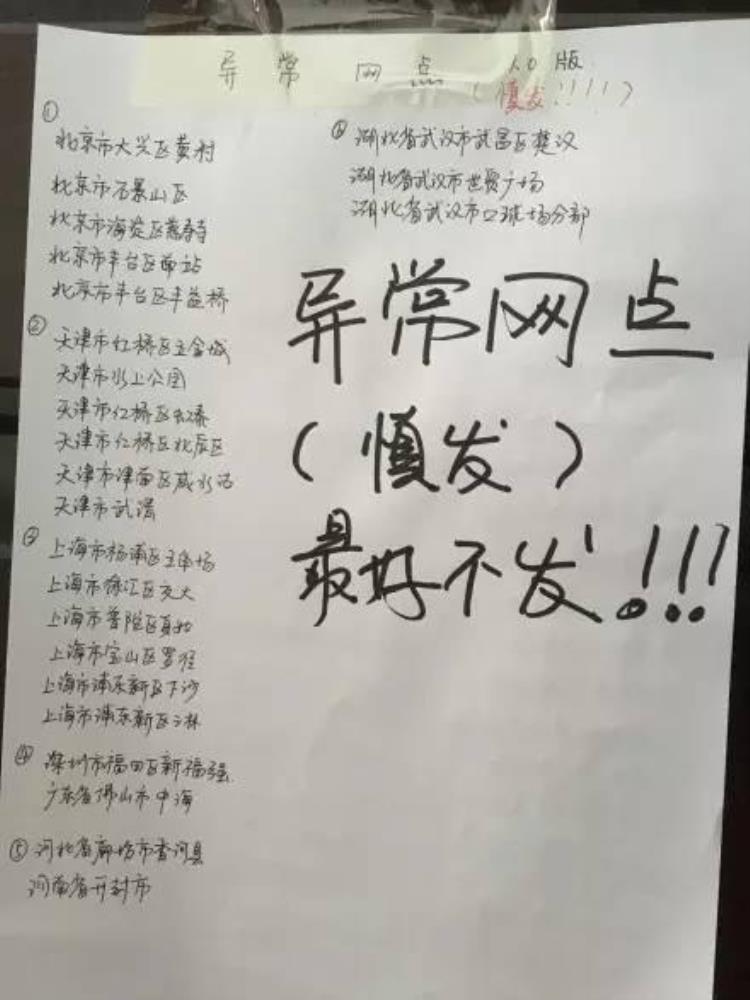 异常网点 1.0版
(慎发!!!!)
①
北京市大兴区黄村
北京市石景山区
北京市海淀区慈寿寺
北京市丰台区西站
北京市丰台区丰益桥
②
天津市红桥区主会城
天津市水上公园
天津市红桥区
天津市红桥区北辰区
天津市津南区咸水沽
天津市武清
③
上海市杨浦区
上海市徐汇区交大
上海市普陀区真如
上海市宝山区罗泾
上海市浦东新区下沙
上海市浦东新区三林
④
深圳市福田区新福强
广东省佛山市中海
⑤ 河北省廊坊市香河县
河南省开封市
⑥ 湖北省武汉市武昌区楚汉
湖北省武汉市世贸广场
湖北省武汉市口球场分部
异常网点
(慎发)
最好不发!!!